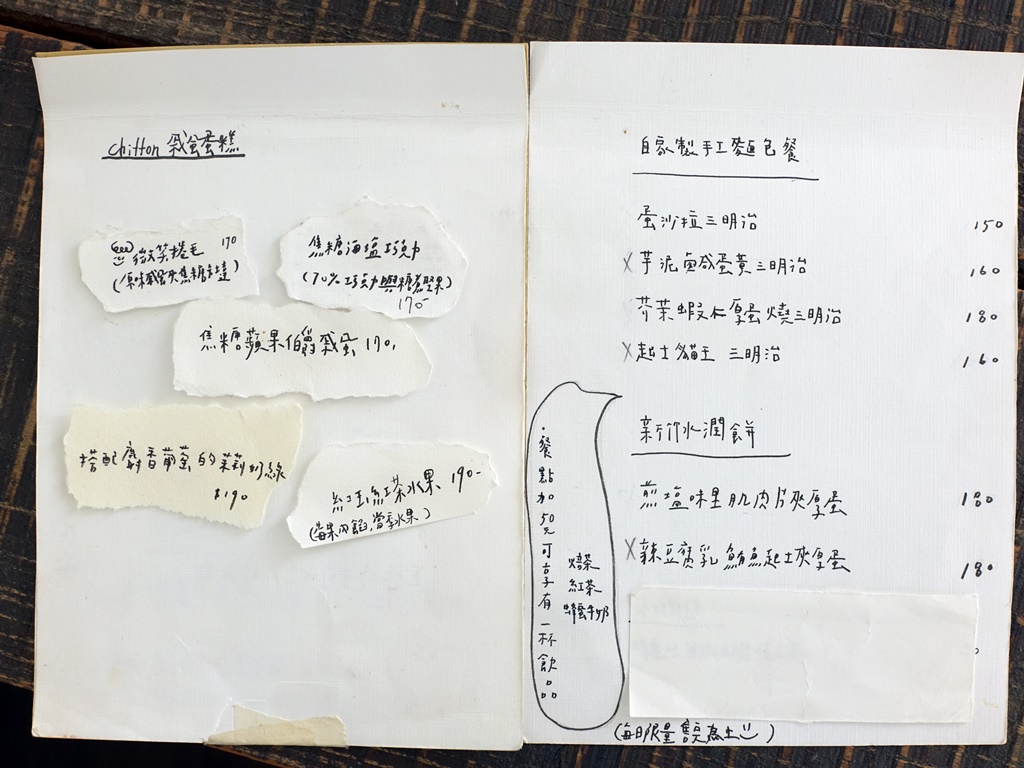 chiffon 戚風蛋糕
微笑捲毛 170
(原味戚風夾焦糖卡達)
焦糖海塩巧克力
(70%巧克力與糖煮堅果)
170-
焦糖蘋果伯爵戚風 170,
搭配麝香葡萄的茉莉奶綠
$190
紅玉紅茶水果 190-
(莓果內餡,當季水果)
自家製手工麵包餐
蛋沙拉三明治 150
X 芋泥鹹蛋黃三明治 160
芥茉蝦仁厚蛋燒三明治 180
X 起士貓王 三明治 160
新竹水潤餅
煎塩味里肌肉片夾厚蛋 180
X 辣豆腐乳鮪魚起士夾厚蛋 180
·餐點加50元可享有一杯飲品
焙茶
紅茶
蜂蜜牛奶
(每日限量售完為止)